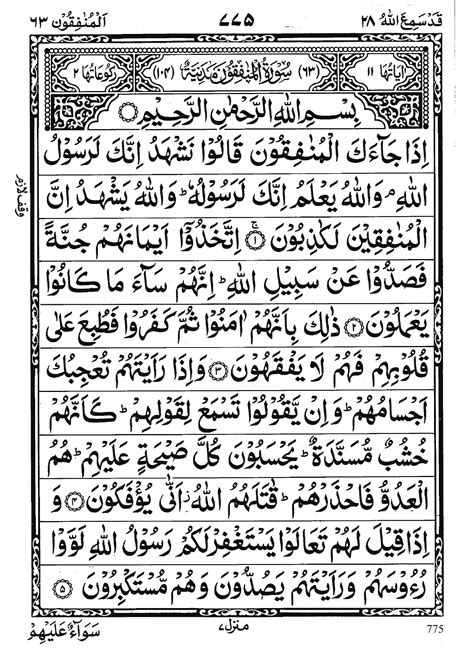 قَدْ سَمِعَ اللهُ ٢٨ ٧٧٥ اَلْمُنٰفِقُوْن ٦٣
اٰيَاتُهَا ١١ (٦٣) سُوْرَةُ الْمُنٰفِقُوْنَ مَدَنِيَّةٌ (١٠٤) رُكُوْعَاتُهَا ٢
بِسْمِ اللهِ الرَّحْمٰنِ الرَّحِيْمِ
اِذَا جَآءَكَ الْمُنٰفِقُوْنَ قَالُوْا نَشْهَدُ اِنَّكَ لَرَسُوْلُ
اللهِ ۘ وَاللهُ يَعْلَمُ اِنَّكَ لَرَسُوْلُهٗ ؕ وَاللهُ يَشْهَدُ اِنَّ
وقف لازم
الْمُنٰفِقِيْنَ لَكٰذِبُوْنَ ۚ ﴿١﴾ اِتَّخَذُوْۤا اَيْمَانَهُمْ جُنَّةً
فَصَدُّوْا عَنْ سَبِيْلِ اللهِ ؕ اِنَّهُمْ سَآءَ مَا كَانُوْا
يَعْمَلُوْنَ ﴿٢﴾ ذٰلِكَ بِاَنَّهُمْ اٰمَنُوْا ثُمَّ كَفَرُوْا فَطُبِعَ عَلٰى
قُلُوْبِهِمْ فَهُمْ لَا يَفْقَهُوْنَ ﴿٣﴾ وَاِذَا رَاَيْتَهُمْ تُعْجِبُكَ
اَجْسَامُهُمْ ؕ وَاِنْ يَّقُوْلُوْا تَسْمَعْ لِقَوْلِهِمْ ؕ كَاَنَّهُمْ
خُشُبٌ مُّسَنَّدَةٌ ؕ يَحْسَبُوْنَ كُلَّ صَيْحَةٍ عَلَيْهِمْ ؕ هُمُ
الْعَدُوُّ فَاحْذَرْهُمْ ؕ قٰتَلَهُمُ اللهُ ؗ اَنّٰى يُؤْفَكُوْنَ ﴿٤﴾ وَ
اِذَا قِيْلَ لَهُمْ تَعَالَوْا يَسْتَغْفِرْ لَكُمْ رَسُوْلُ اللهِ لَوَّوْا
رُءُوْسَهُمْ وَرَاَيْتَهُمْ يَصُدُّوْنَ وَهُمْ مُّسْتَكْبِرُوْنَ ﴿٥﴾
منزل ٧
سَوَآءٌ عَلَيْهِمْ
775